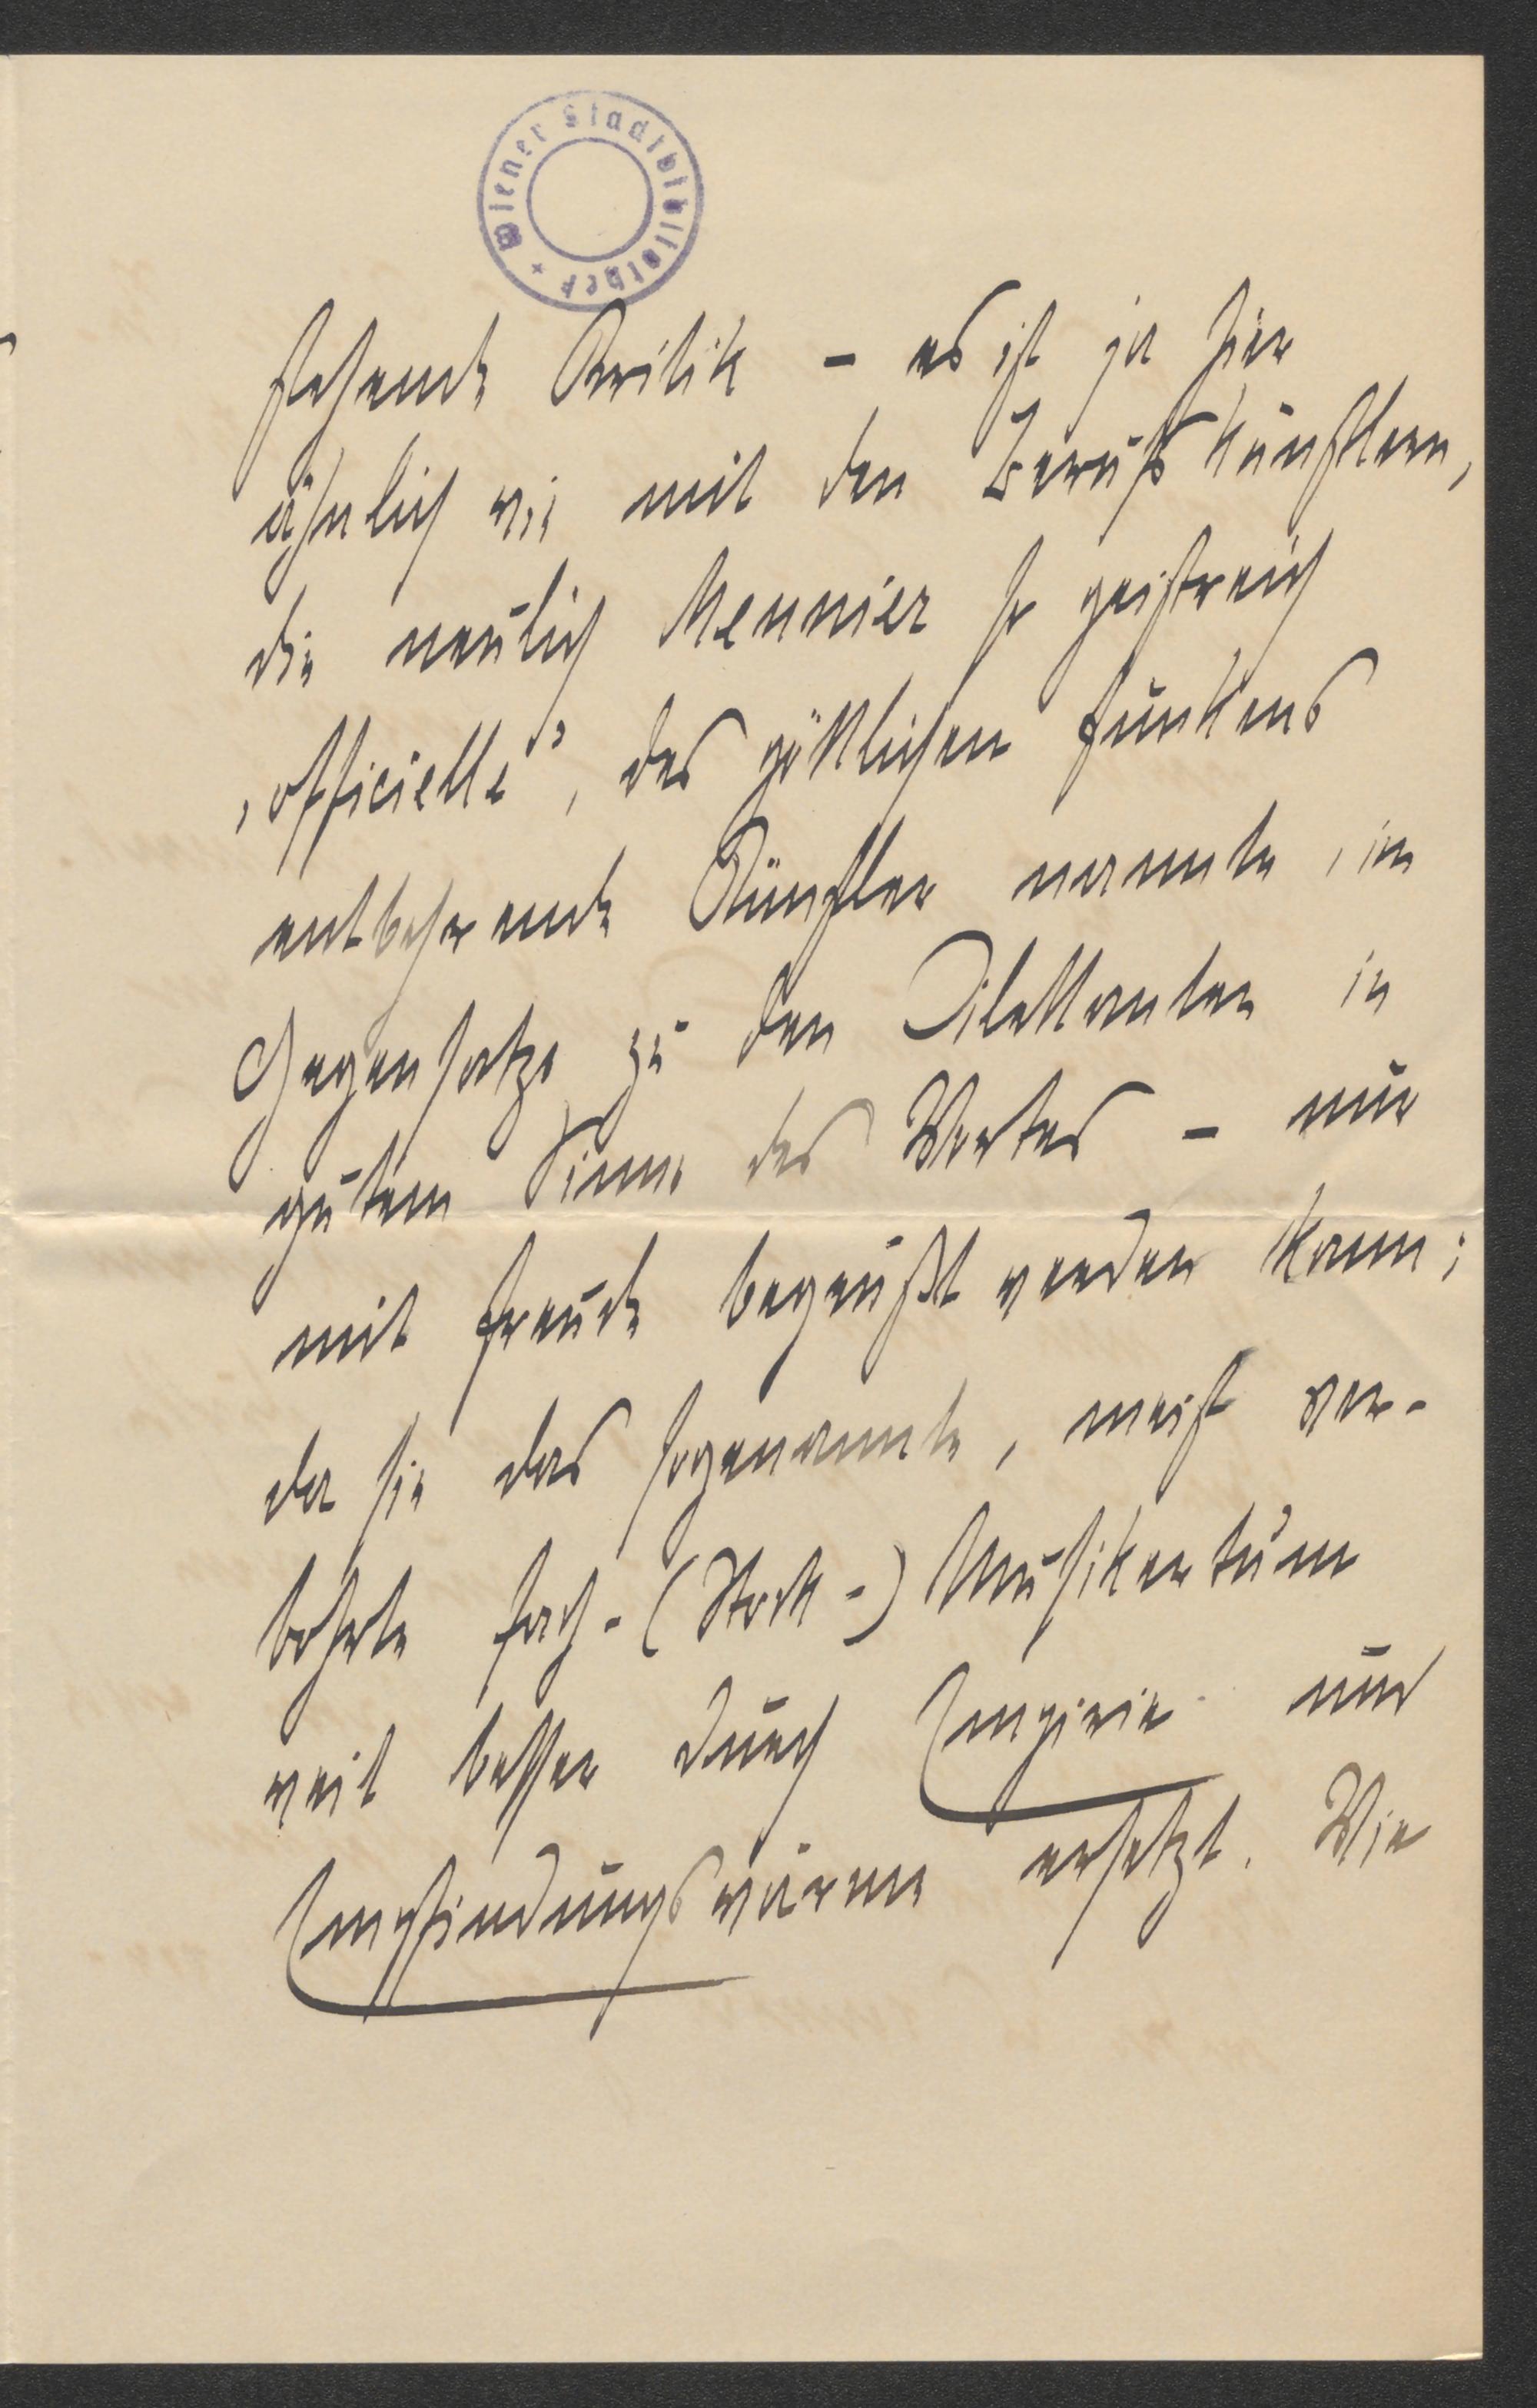 Wiener Stadtbibliothek
stehende Kritik – es ist ja hier
ähnlich wie mit den Berufskünstlern,
die neulich Mennier so geistreich
„officielle“, des göttlichen Funkens
entbehrende Künstler nannte, im
Gegensatze zu den Dilettanten in
gutem Sinne des Wortes – nur
mit Freude begrüßt werden kann;
da sie das sogenannte, meist ver-
bohrte Fach-(Stock-)Musikertum
weit besser durch Empirie und
Empfindungswärme ersetzt. Wie